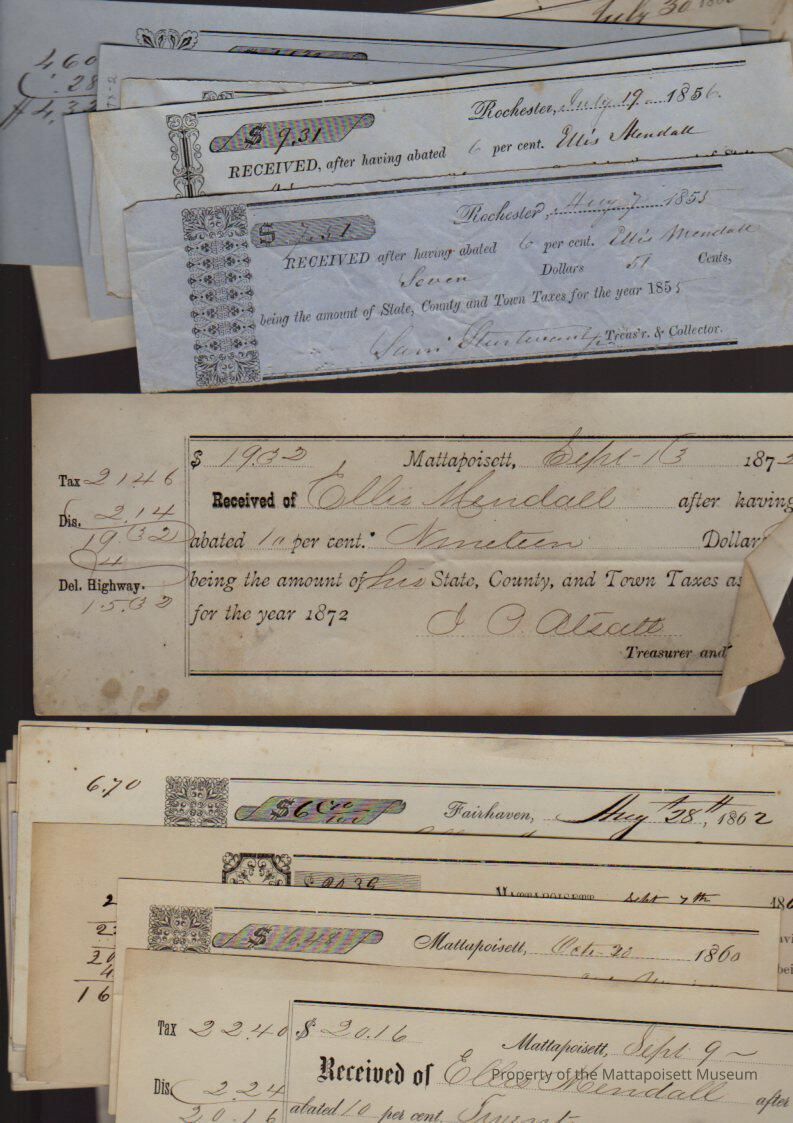 July 30
460
.28
4,32
Rochester, July 19 1856.
$ 9.31
RECEIVED, after having abated 6 per cent. Ellis Mendall
Rochester, Aug 7 1855
$ 7.51
RECEIVED after having abated 6 per cent. Ellis Mendall
Seven Dollars 51 Cents,
being the amount of State, County and Town Taxes for the year 1855
Sam Sturtevant Treas'r. & Collector.
$ 1932 Mattapoisett, Sept 13 1872
Tax 2146
Received of Ellis Mendall after having
Dis. 2.14
19.32
abated 10 per cent. Nineteen Dollar
4
being the amount of his State, County, and Town Taxes as
Del. Highway.
15.32
for the year 1872
Treasurer and
6.70
$6 Fairhaven, Aug 28th, 1862
$20.39 MATTAPOISETT Sept 7th 186
2
2
20
4
16
$ 6.48 Mattapoisett, Oct. 20 1860
Tax 22.40 $ 20.16
Mattapoisett, Sept 9
Received of Ellis Mendall after
Dis. 2.24
20.16
abated 10 per cent. Twent
Property of the Mattapoisett Museum